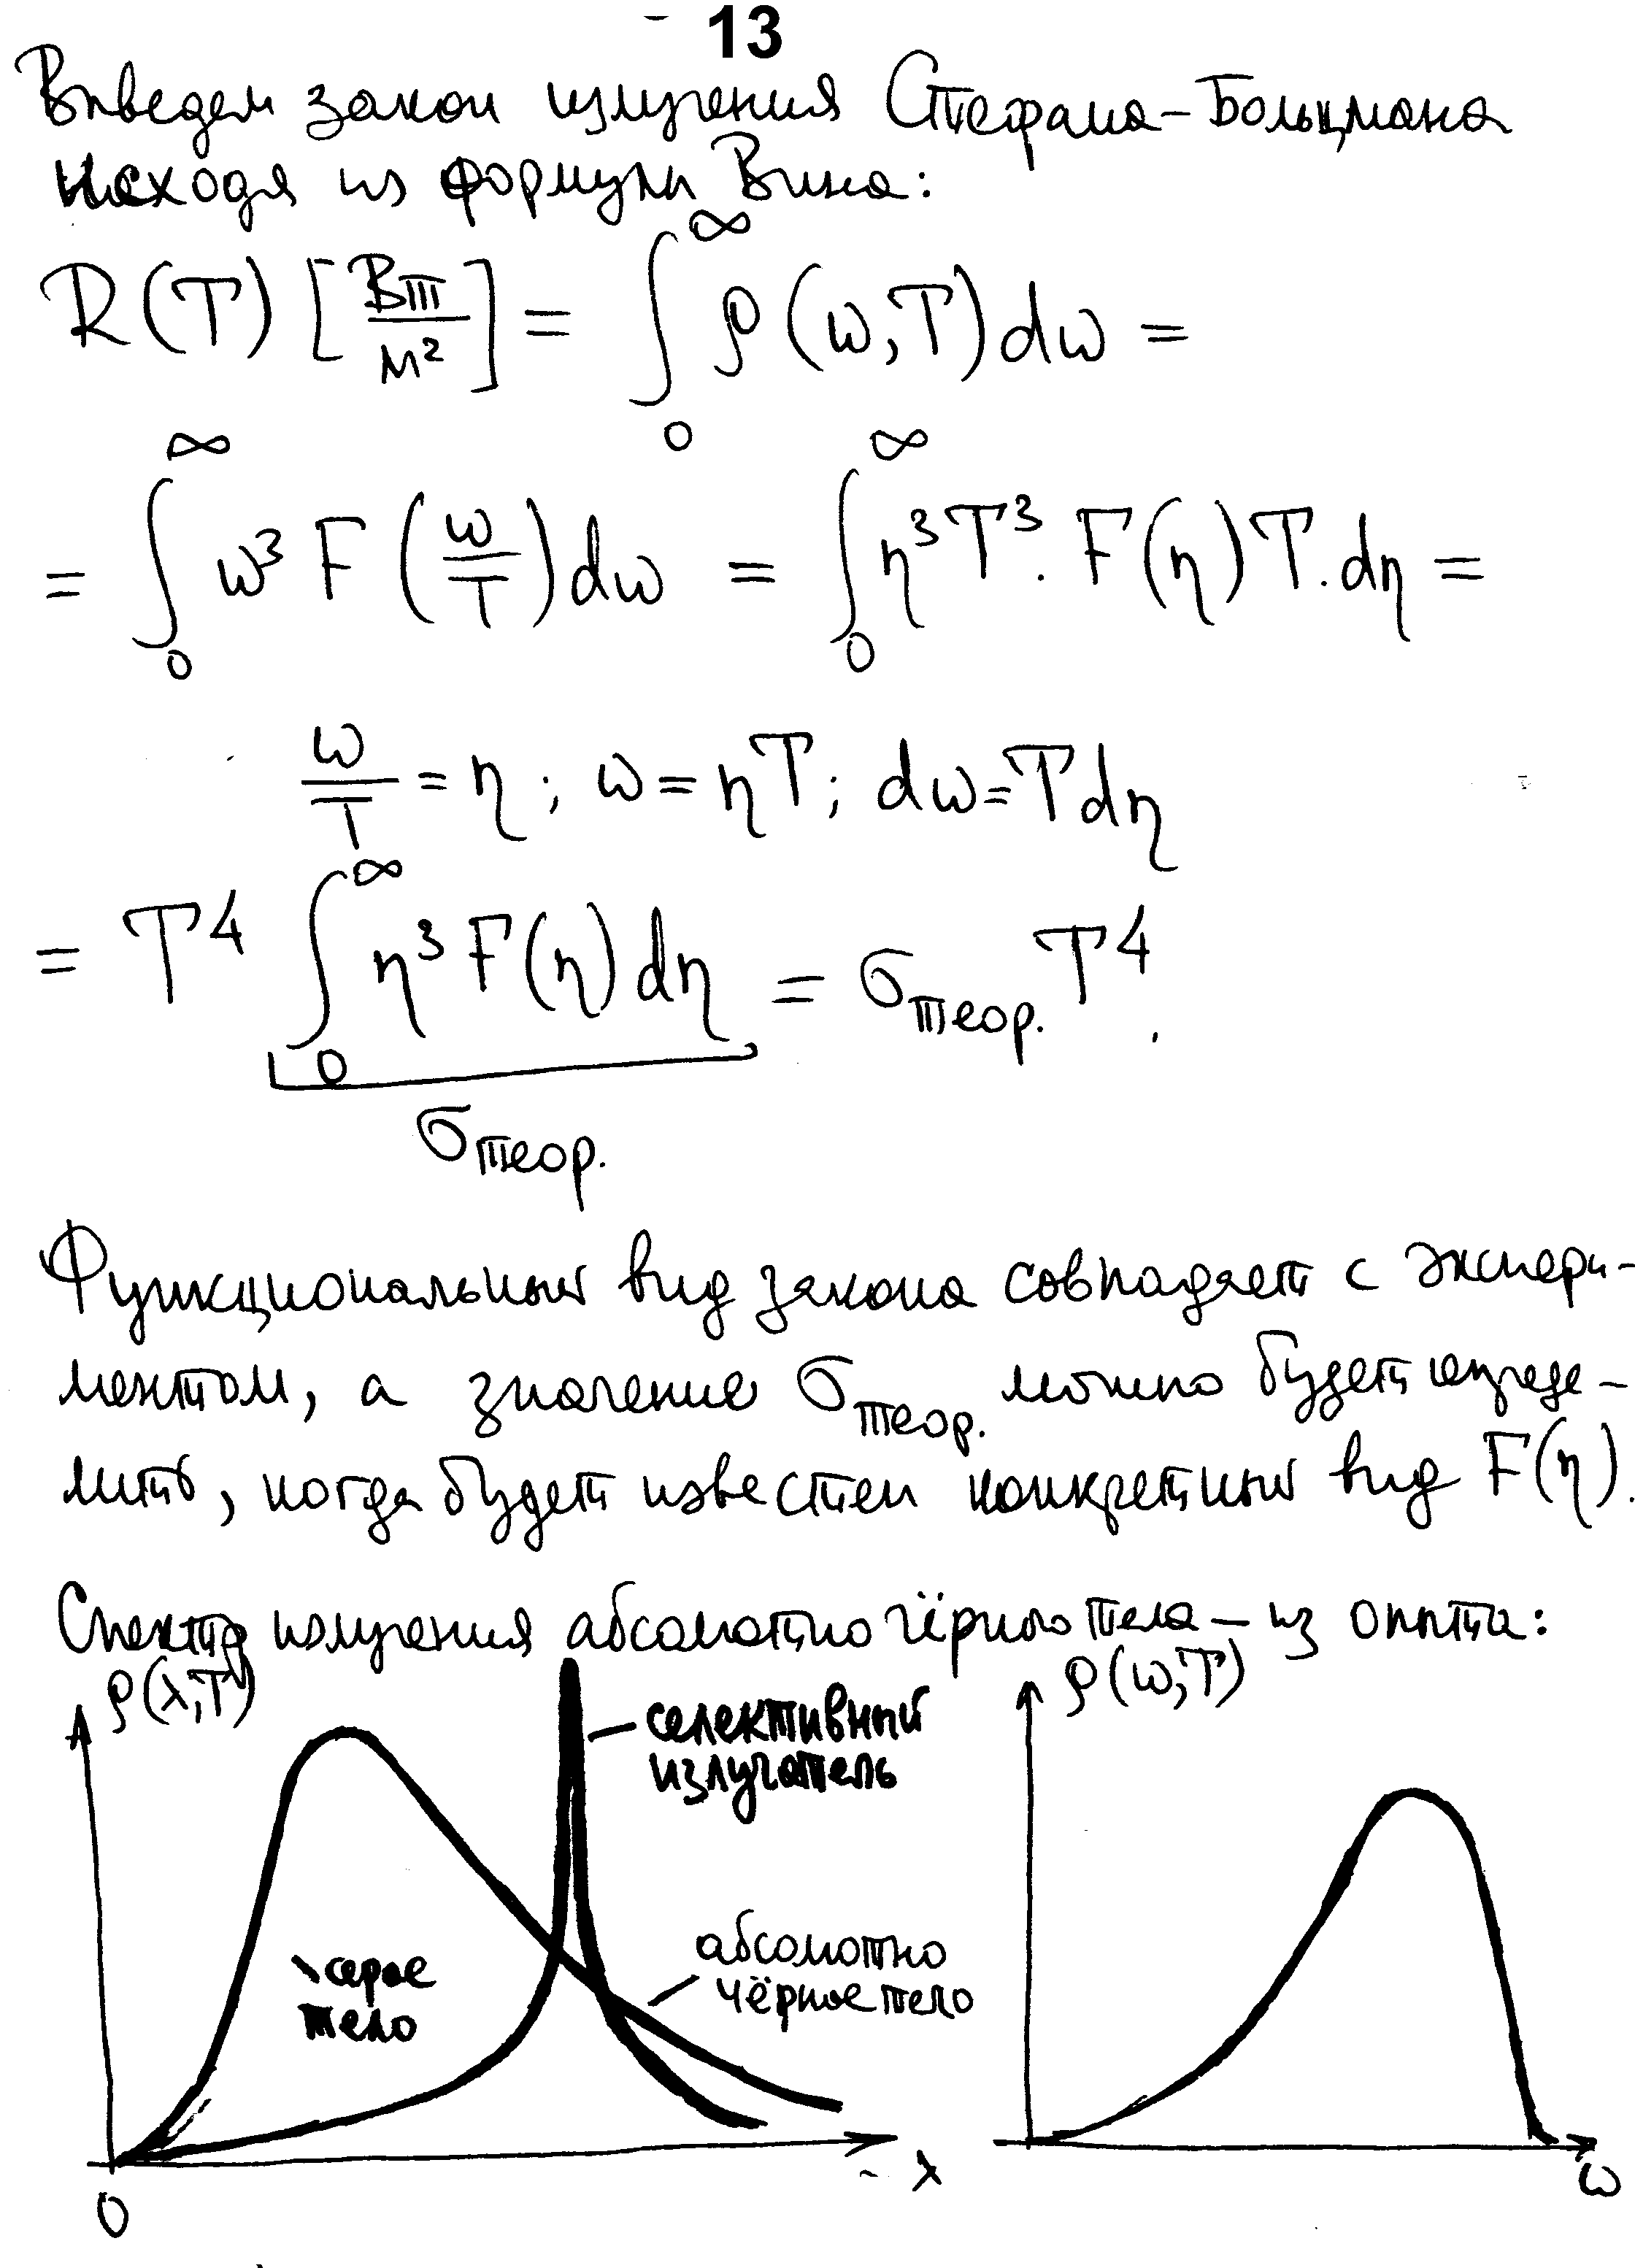 13
Выведем закон излучения Стефана-Больцмана
исходя из формулы Вина:
R(T) [Вт/м²] = ∫₀^∞ ρ(ω,T)dω =
= ∫₀^∞ ω³ F(ω/T)dω = ∫₀^∞ η³T³·F(η)T·dη =
ω/T = η; ω = ηT; dω = Tdη
= T⁴ ∫₀^∞ η³F(η)dη = σтеор. T⁴.
σтеор.
Функциональный вид закона совпадает с экспери-
ментом, а значение σтеор. можно будет опреде-
лить, когда будет известен конкретный вид F(η).
Спектр излучения абсолютно чёрного тела – из опыта:
ρ(λ,T)
ρ(ω,T)
селективный
излучатель
серое
тело
абсолютно
чёрное тело
0
λ
ω